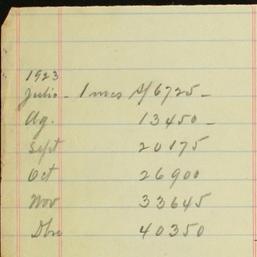 1923
Julio - 1 mes S/6725-
Ag. 13450-
Sept 20175
Oct 26900
Nov 33645
Dbre 40350